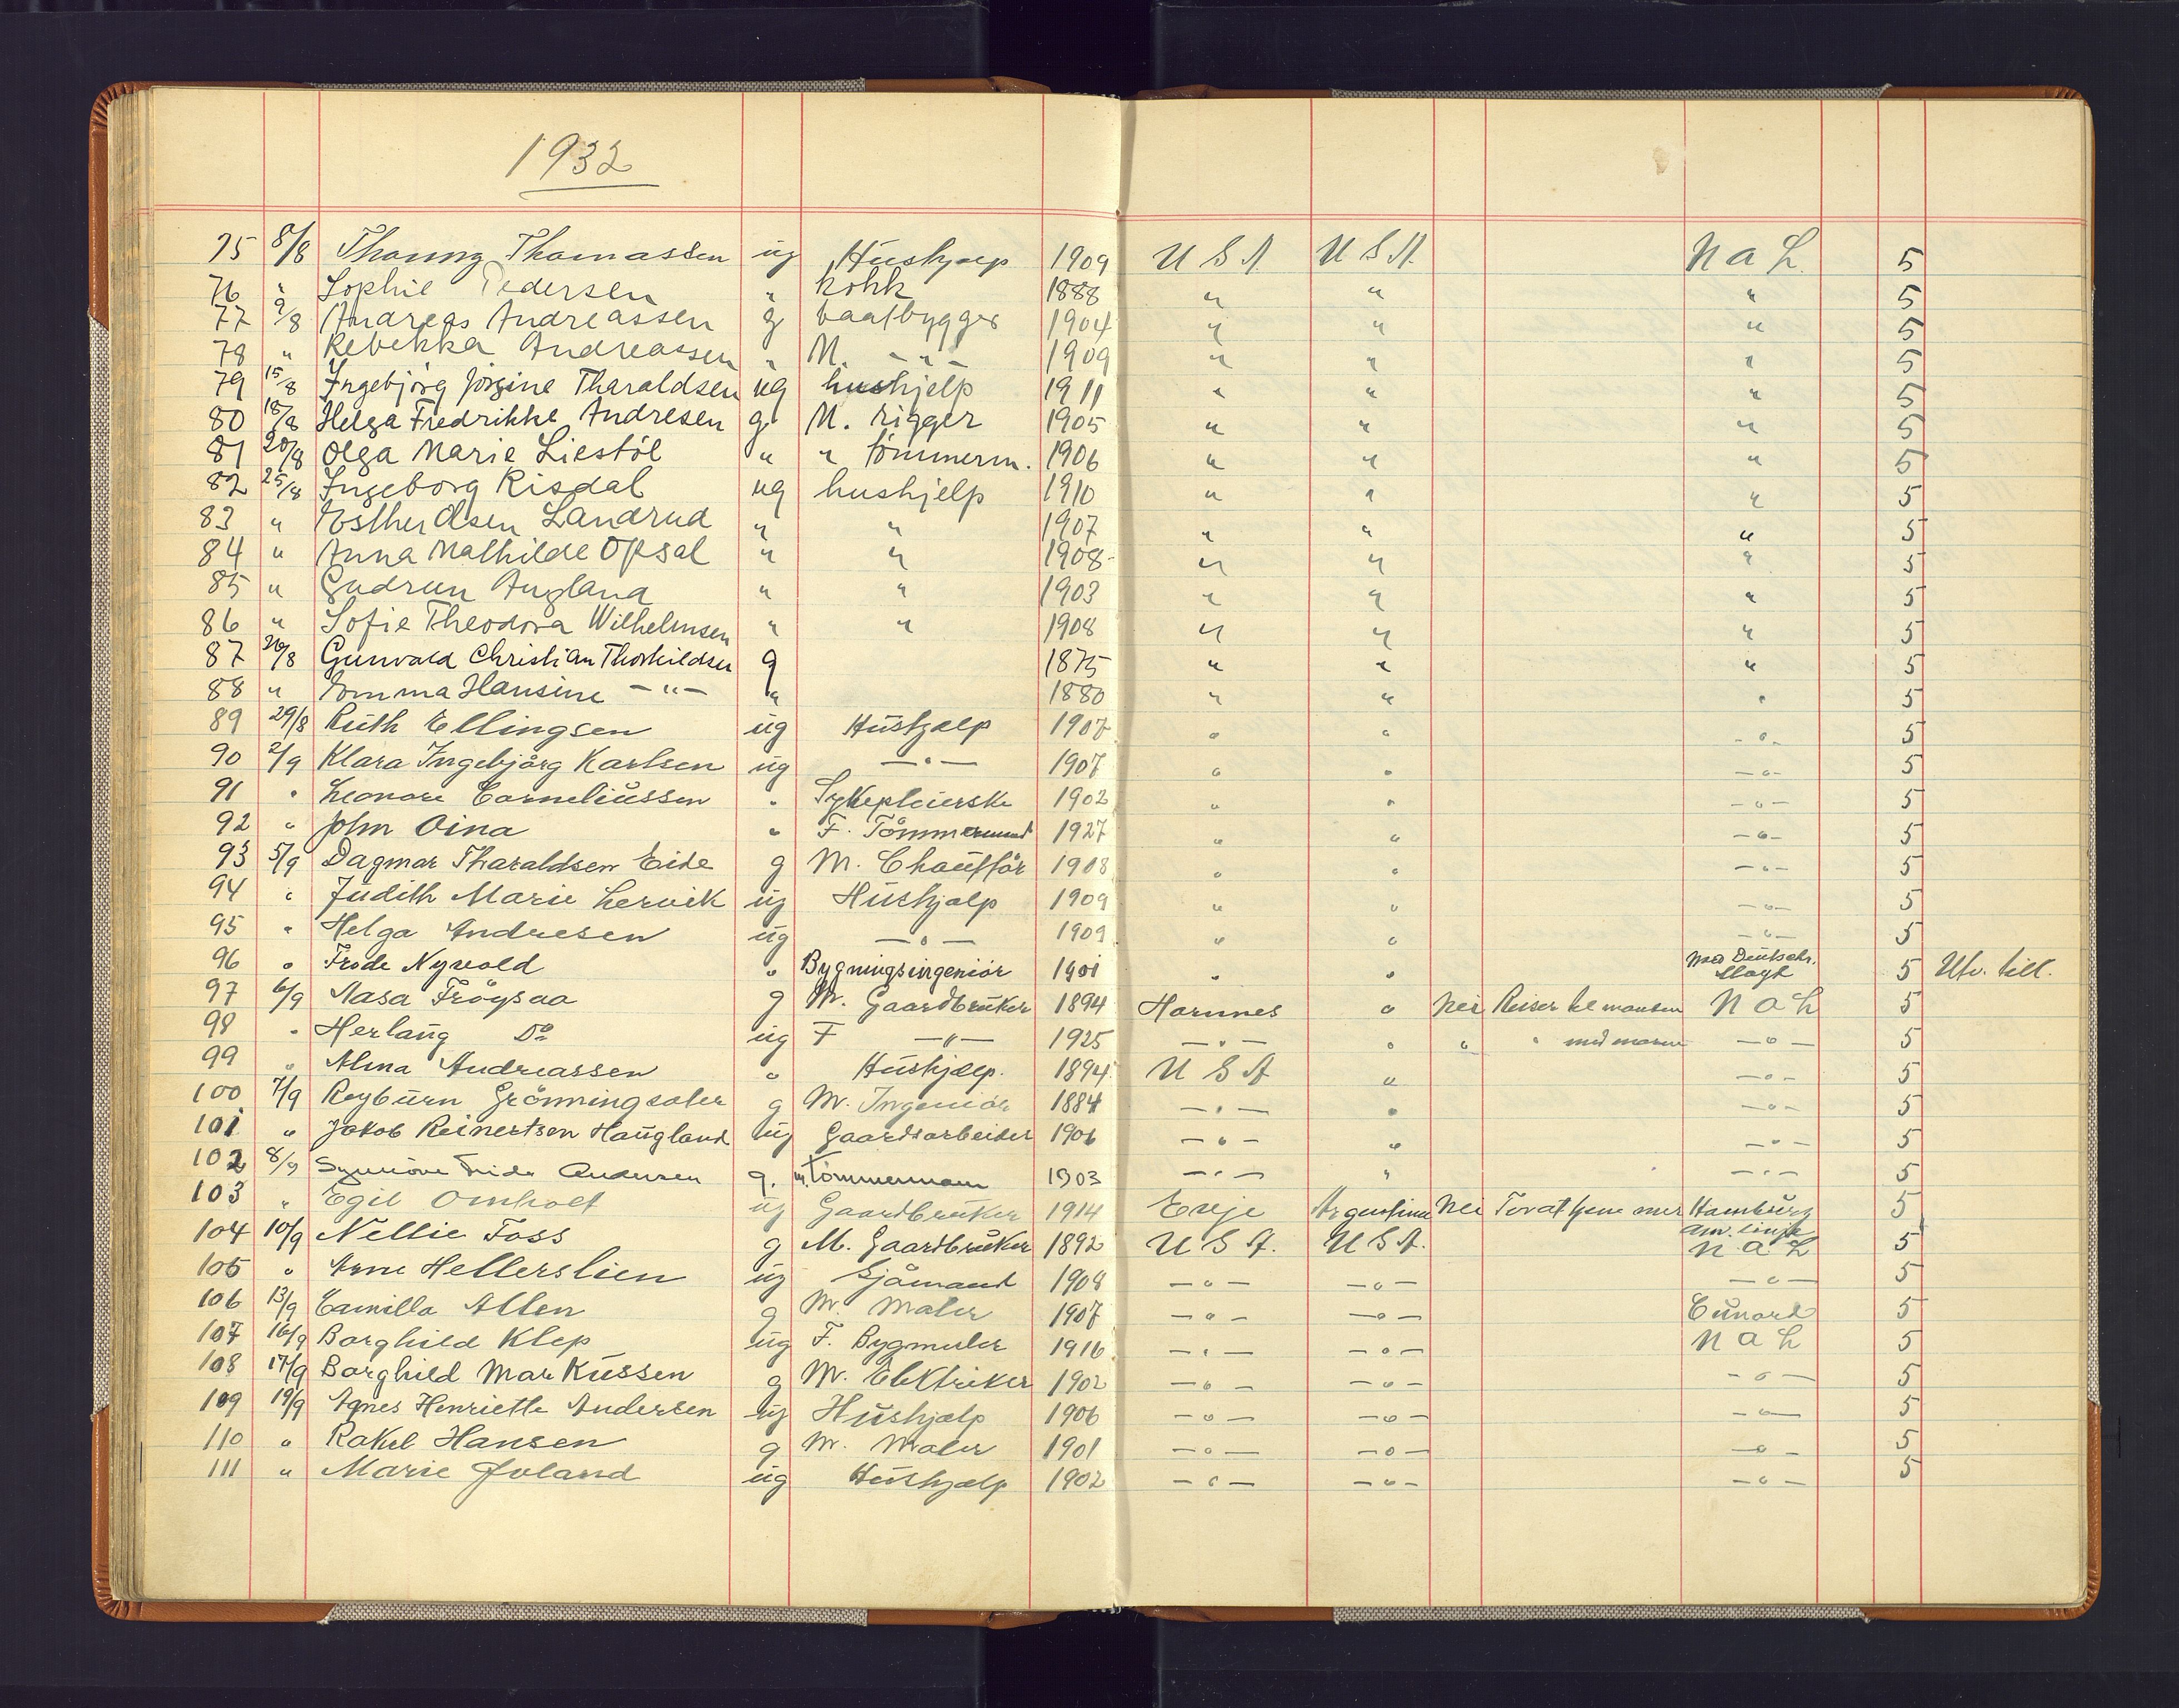 1932
75 8/8 Thonny Thomassen ug Hushjælp 1909 U S A U S A. N A L. 5
76 " Sophie Pedersen " kokk 1888 " " " 5
77 9/8 Andreas Andreassen g baatbygger 1904 " " " 5
78 " Rebekka Andreassen " M. - " - 1909 " " " 5
79 15/8 Ingebjörg Jörgine Tharaldsen ug hushjelp 1911 " " " 5
80 18/8 Helga Fredrikke Andresen g M. rigger 1905 " " " 5
81 20/8 Olga Marie Liestöl " " tömmerm. 1906 " " " 5
82 25/8 Ingeborg Risdal ug hushjelp 1910 " " " 5
83 " Esther Olsen Landrud " " 1907 " " " 5
84 " Anna Mathilde Opsal " " 1908 " " " 5
85 " Gudrun Augland " " 1903 " " " 5
86 " Sofie Theodora Wilhelmsen " " 1908 " " " 5
87 26/8 Gunvald Christian Thorkildsen g 1875 " " " 5
88 " Emma Hansine - " - " 1880 " " " 5
89 29/8 Ruth Ellingsen ug Hushjælp 1907 " " - " - 5
90 2/9 Klara Ingebjörg Karlsen ug - " - 1907 " " - " - 5
91 " Leonore Corneliussen " Sykepleierske 1902 " " - " - 5
92 " John Oina " F. Tömmermand 1927 " " - " - 5
93 5/9 Dagmar Tharaldsen Eide g M. Chaufför 1908 " " - " - 5
94 " Judith Marie Lervik ug Hushjælp 1909 " " - " - 5
95 " Helga Andresen ug - " - 1909 " " - " - 5
96 " Frode Nyvold " Bygningsingeniör 1901 " " Nord Deutscher. Lloyd 5 Utv. till.
97 6/9 Aasa Fröysaa g M. Gaardbruker 1894 Hornnes " Nei Reiser til manden N A L 5
98 " Herlaug Do ug F - " - 1925 - " - " " " med moren - " - 5
99 " Alma Andreassen " Hushjælp. 1894 U S A " - " - 5
100 7/9 Rayburn Grönningsæter g M. Ingeniör 1884 - " - " - " - 5
101 " Jakob Reinertsen Haugland ug Gaardsarbeider 1906 - " - " - " - 5
102 8/9 Synnöve Frida Andersen g. m. Tömmermann 1903 - " - " - " - 5
103 " Egil Omholt ug Gaardbruker 1914 Evje Argentina Nei For at tjene mer Hamburg Am. linje 5
104 10/9 Nellie Foss g M. Gaardbruker 1892 U S A. U S A. N A L 5
105 " Arne Hellerslien ug Sjömand 1908 - " - - " - - " - 5
106 13/9 Camilla Allen g M. Maler 1907 - " - - " - Cunard 5
107 16/9 Borghild Klep ug F. Bygmester 1916 - " - - " - N A L 5
108 17/9 Borghild Markussen g M. Elektriker 1902 - " - - " - - " - 5
109 19/9 Agnes Henriette Andersen ug Hushjælp 1906 - " - - " - - " - 5
110 " Rakel Hansen g M. Maler 1901 - " - - " - - " - 5
111 " Marie Joland ug Hushjælp 1902 - " - - " - - " - 5